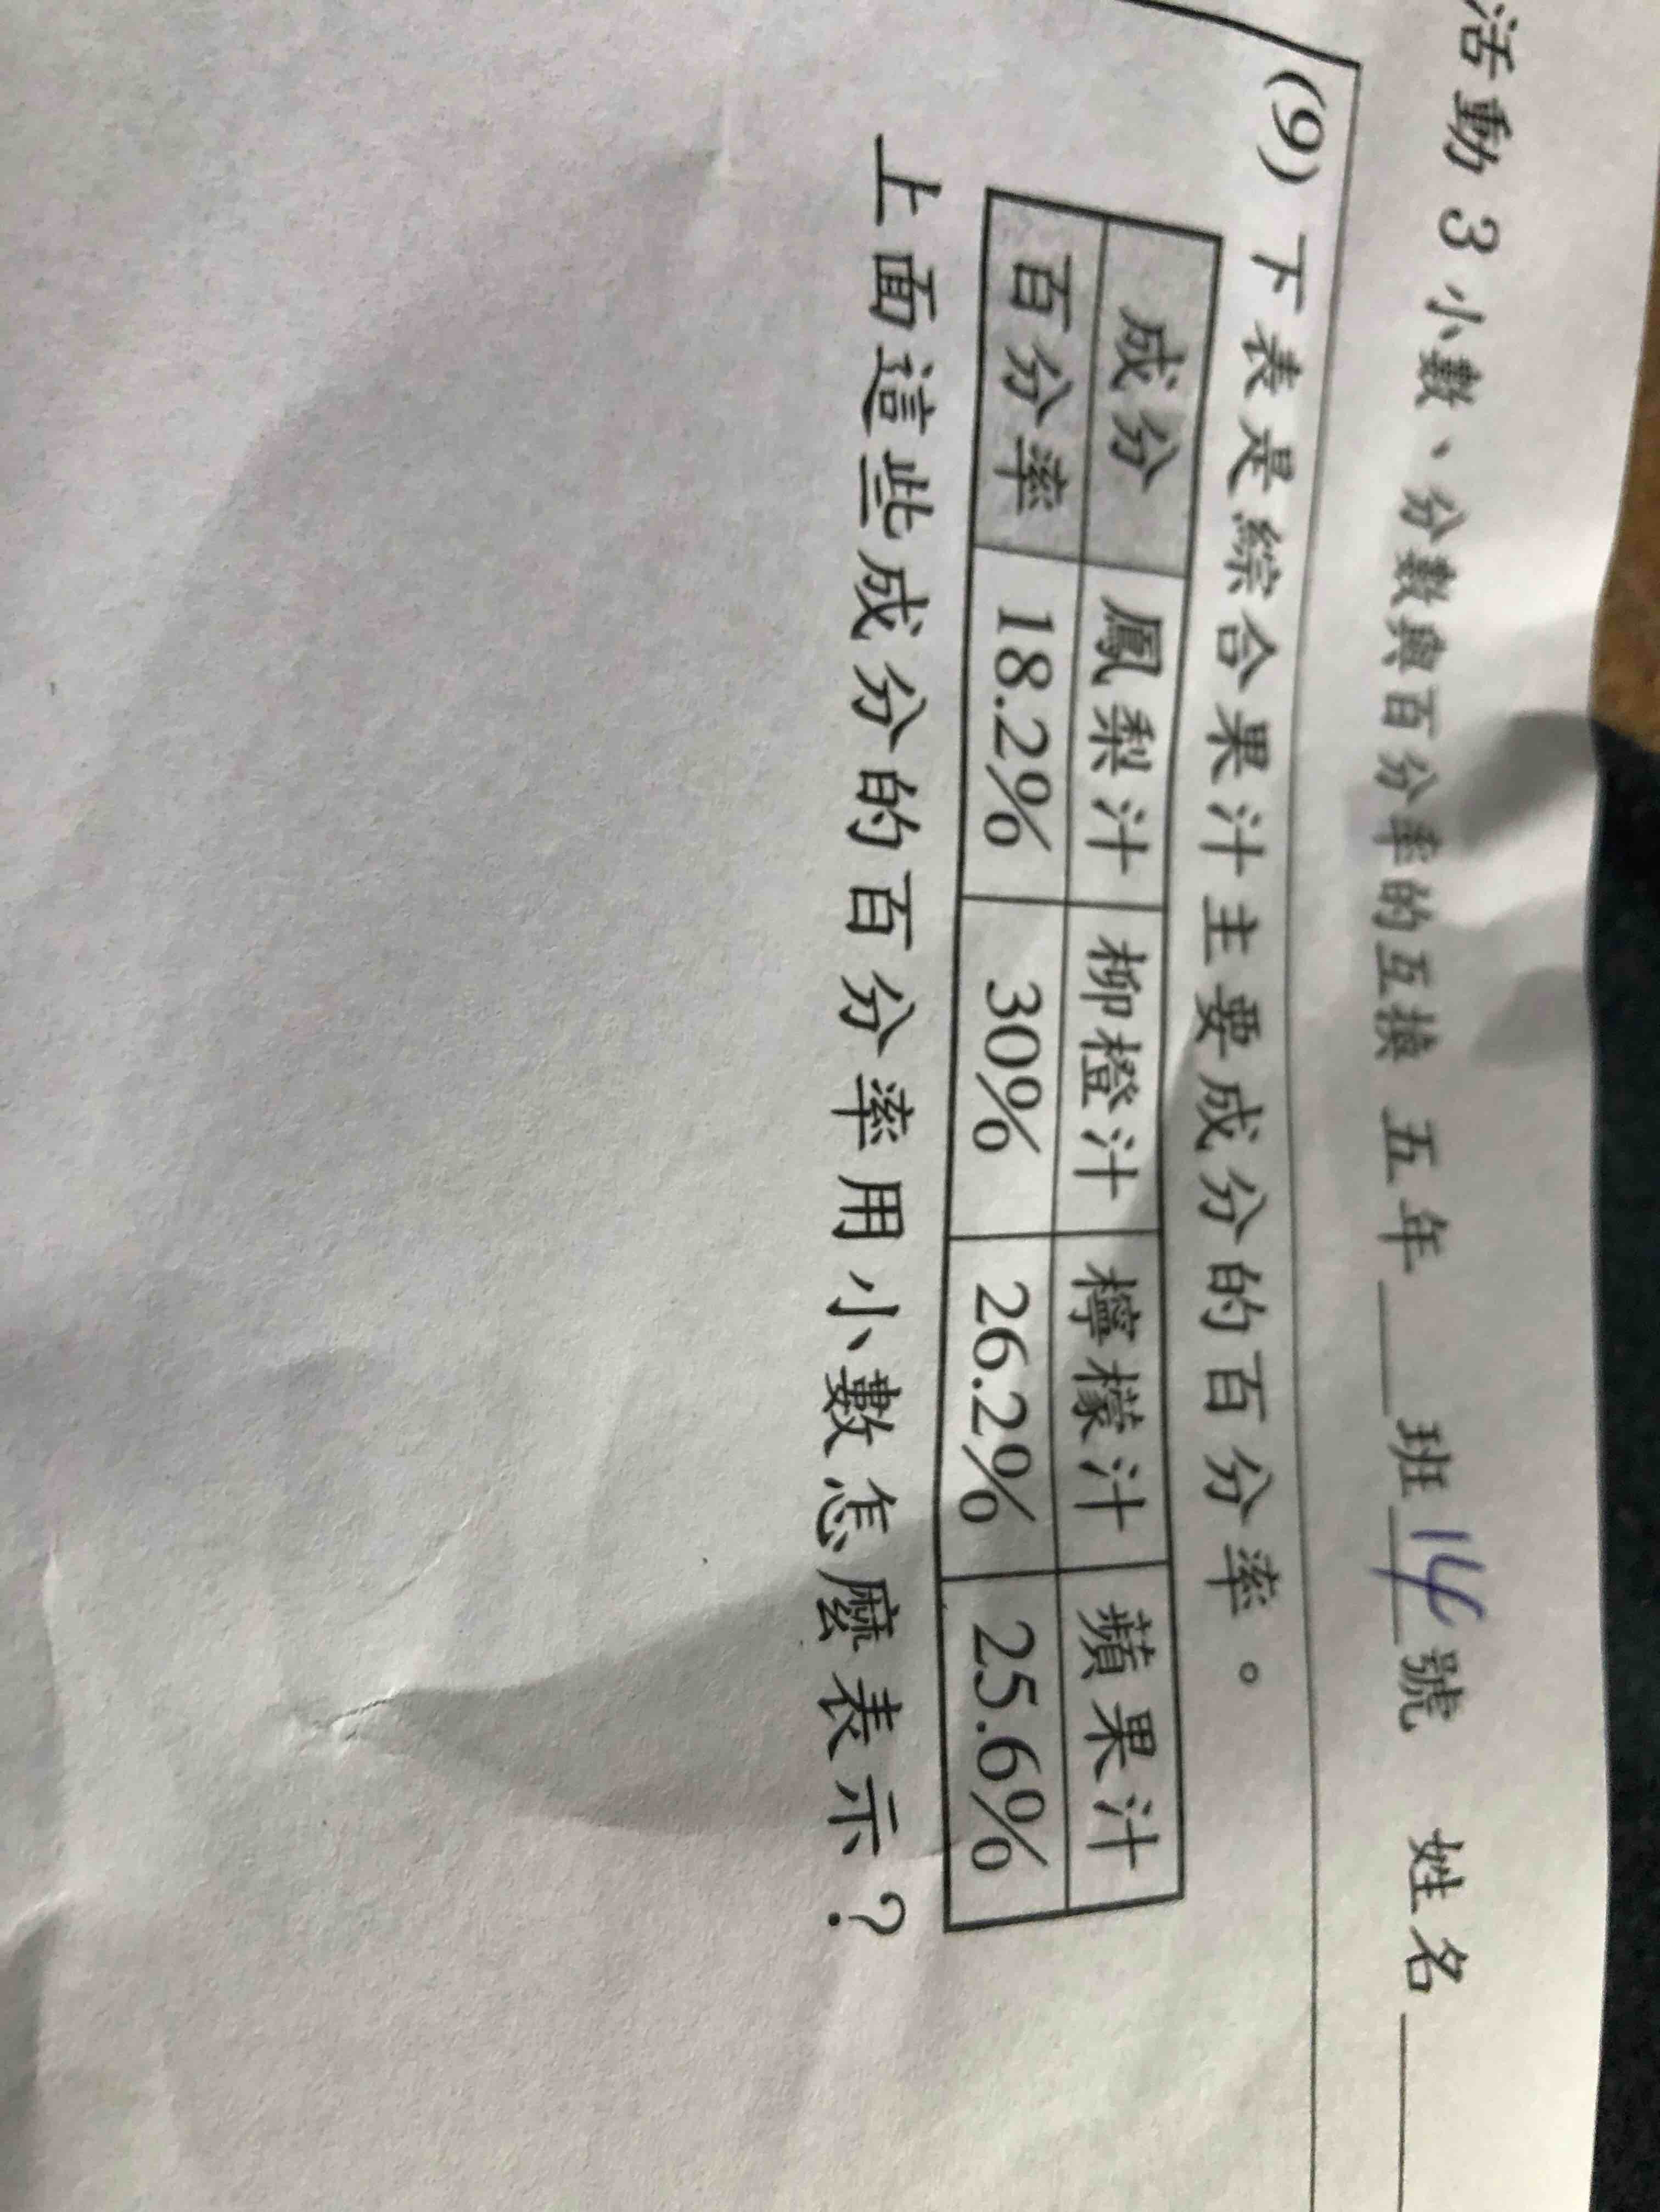 活動3小數、分數與百分率的互換 五年___班14號 姓名___
(9)下表是綜合果汁主要成分的百分率。
成分 鳳梨汁 柳橙汁 檸檬汁 蘋果汁
百分率 18.2% 30% 26.2% 25.6%
上面這些成分的百分率用小數怎麼表示?